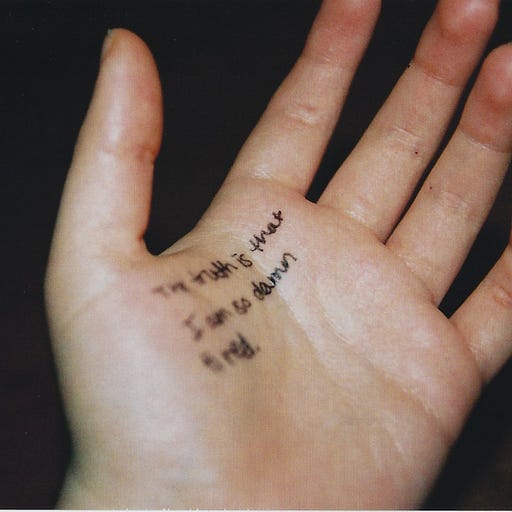 The truth is that
I am so damn